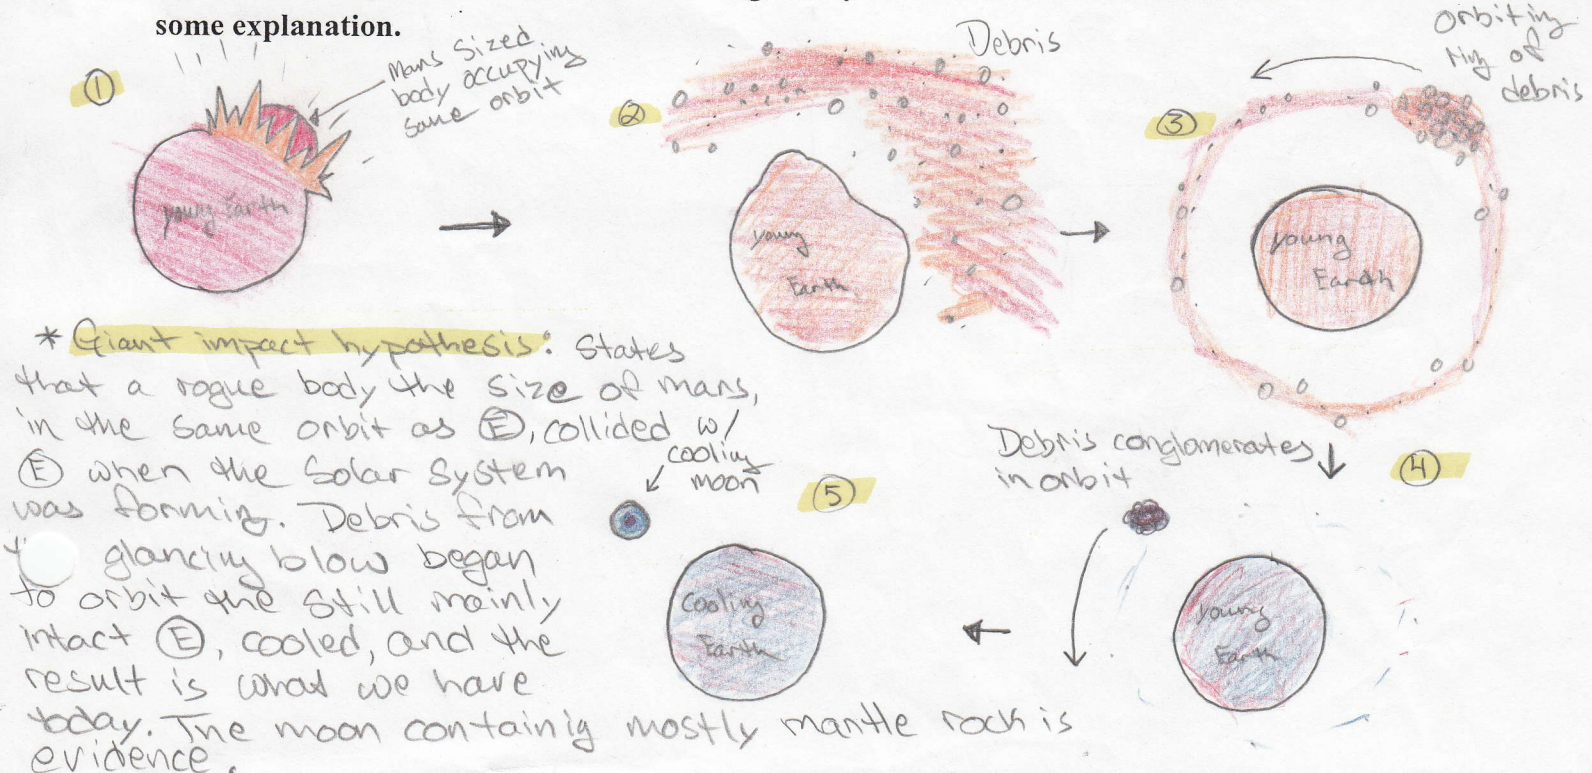 some explanation.
①
Mars Sized
body occupying
same orbit
young Earth
②
Debris
young
Earth
③
orbiting
ring of
debris
young
Earth
* Giant impact hypothesis: States
that a rogue body the size of mars,
in the same orbit as Ⓔ, collided w/
Ⓔ when the Solar System
was forming. Debris from
glancing blow began
to orbit the still mainly
intact Ⓔ, cooled, and the
result is what we have
today. The moon containig mostly mantle rock is
evidence.
Debris conglomerates
in orbit
④
young
Earth
⑤
cooling
moon
cooling
Earth